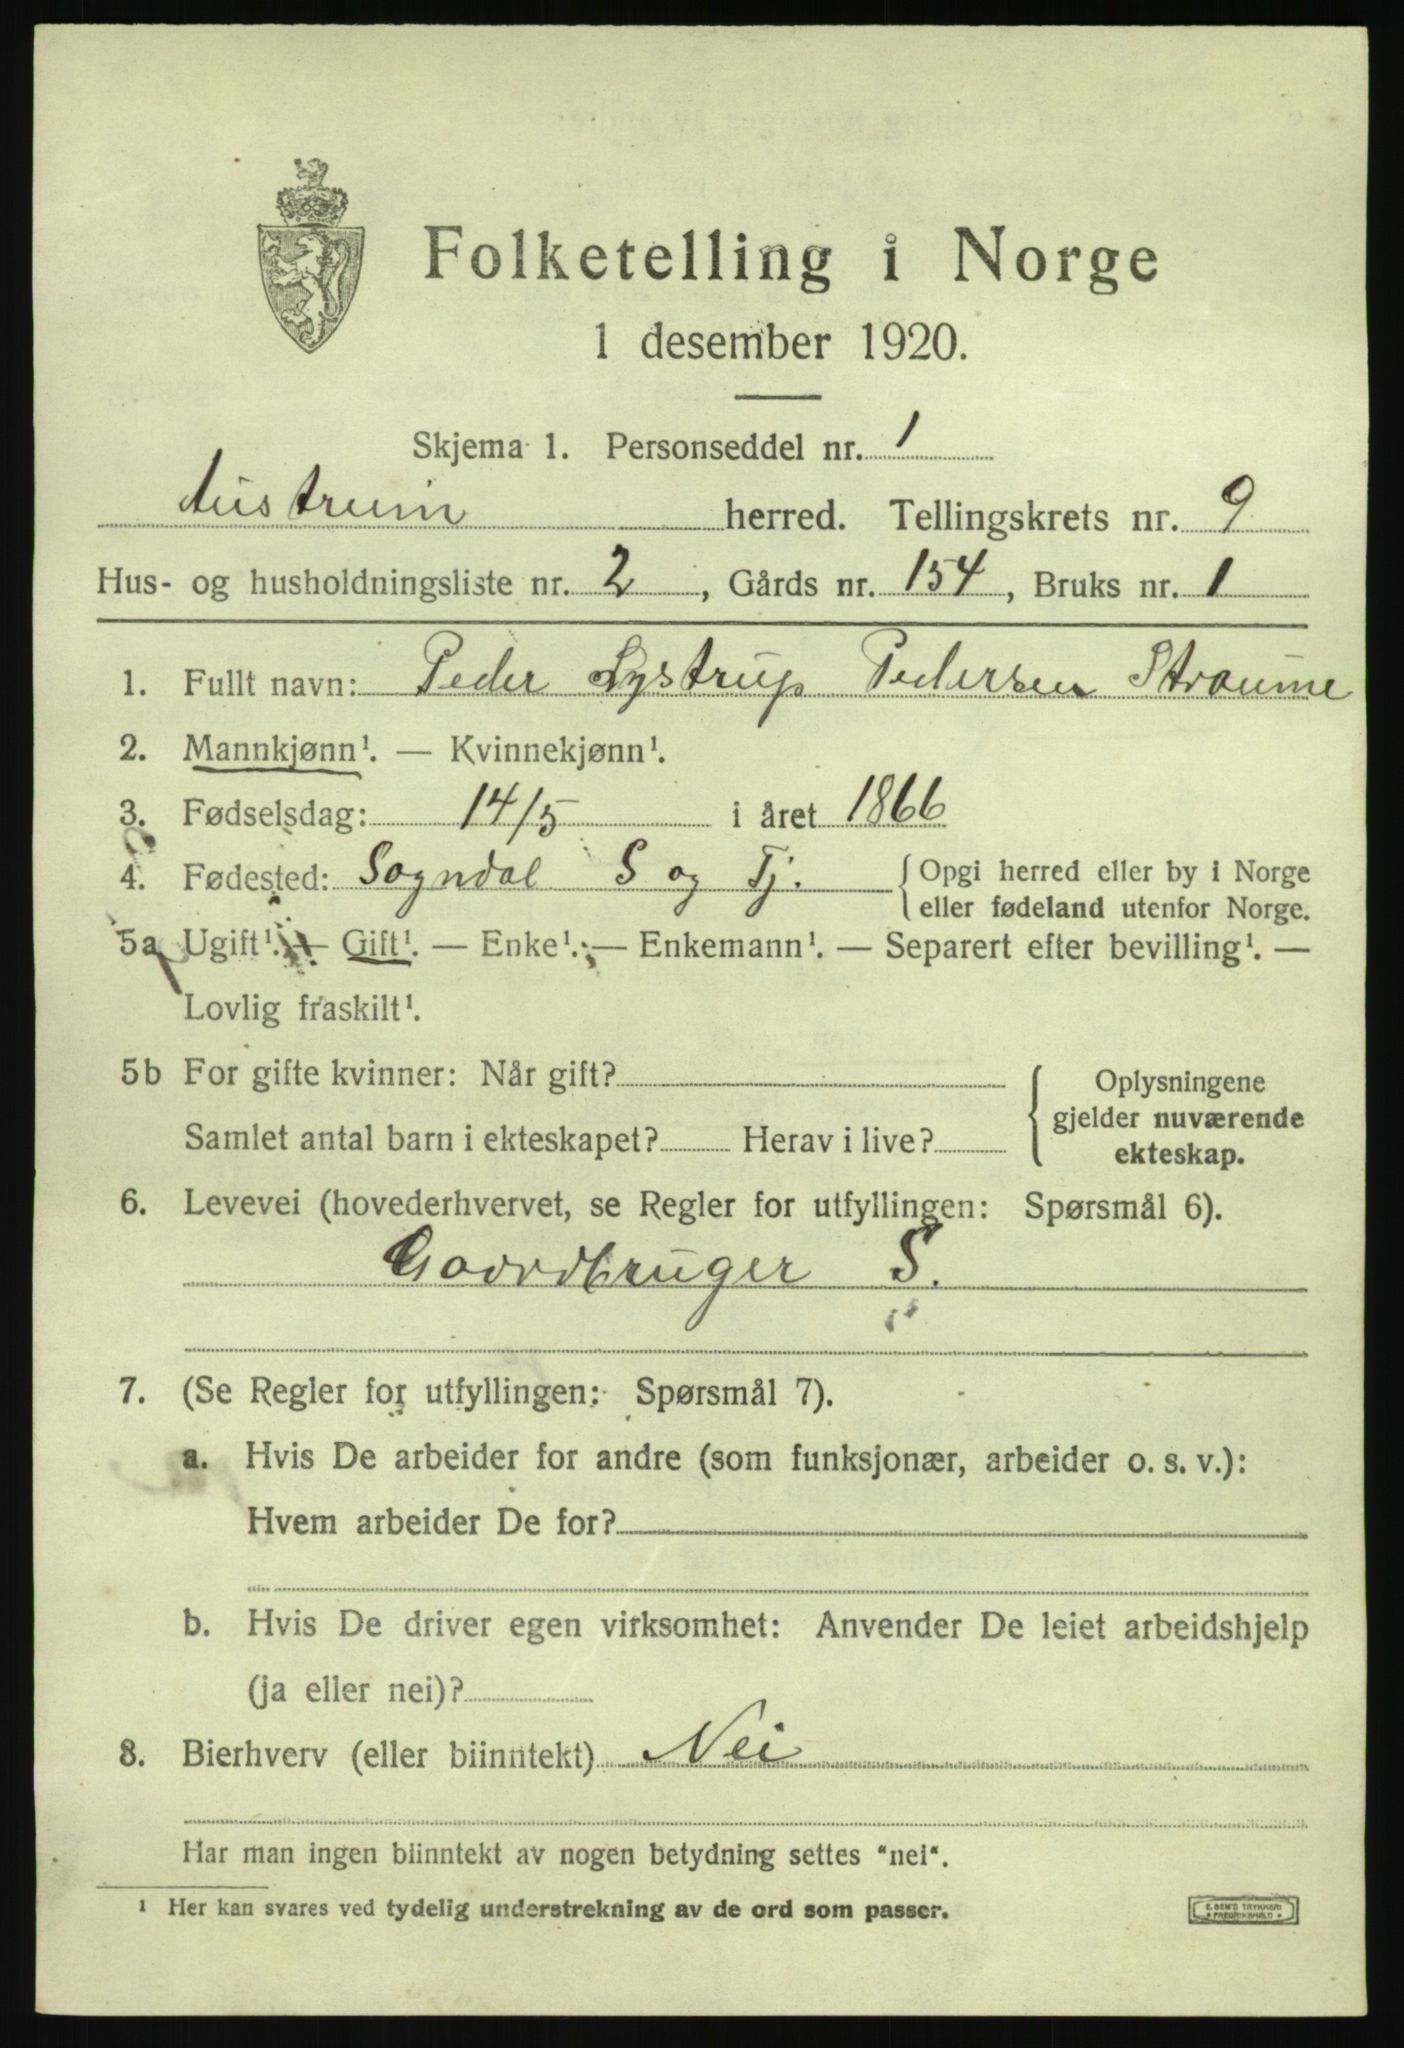 Folketelling i Norge
1 desember 1920.
Skjema 1. Personseddel nr. 1
Austrum herred. Tellingskrets nr. 9
Hus- og husholdningsliste nr. 2, Gårds nr. 154, Bruks nr. 1
1. Fullt navn: Peder Lystrup Pedersen Straume
2. Mannkjønn¹. — Kvinnekjønn¹.
3. Fødselsdag: 14/5 i året 1866
4. Fødested: Sogndal S og Fj. { Opgi herred eller by i Norge
eller fødeland utenfor Norge.
5a Ugift¹. — Gift¹. — Enke¹. — Enkemann¹. — Separert efter bevilling¹. —
Lovlig fraskilt¹.
5b For gifte kvinner: Når gift?
Samlet antal barn i ekteskapet? Herav i live?
{ Oplysningene
gjelder nuværende
ekteskap.
6. Levevei (hovederhvervet, se Regler for utfyllingen: Spørsmål 6).
Gaardbruger S.
7. (Se Regler for utfyllingen: Spørsmål 7).
a. Hvis De arbeider for andre (som funksjonær, arbeider o. s. v.):
Hvem arbeider De for?
b. Hvis De driver egen virksomhet: Anvender De leiet arbeidshjelp
(ja eller nei)?
8. Bierhverv (eller biinntekt) Nei
Har man ingen biinntekt av nogen betydning settes "nei".
¹ Her kan svares ved tydelig understrekning av de ord som passer.